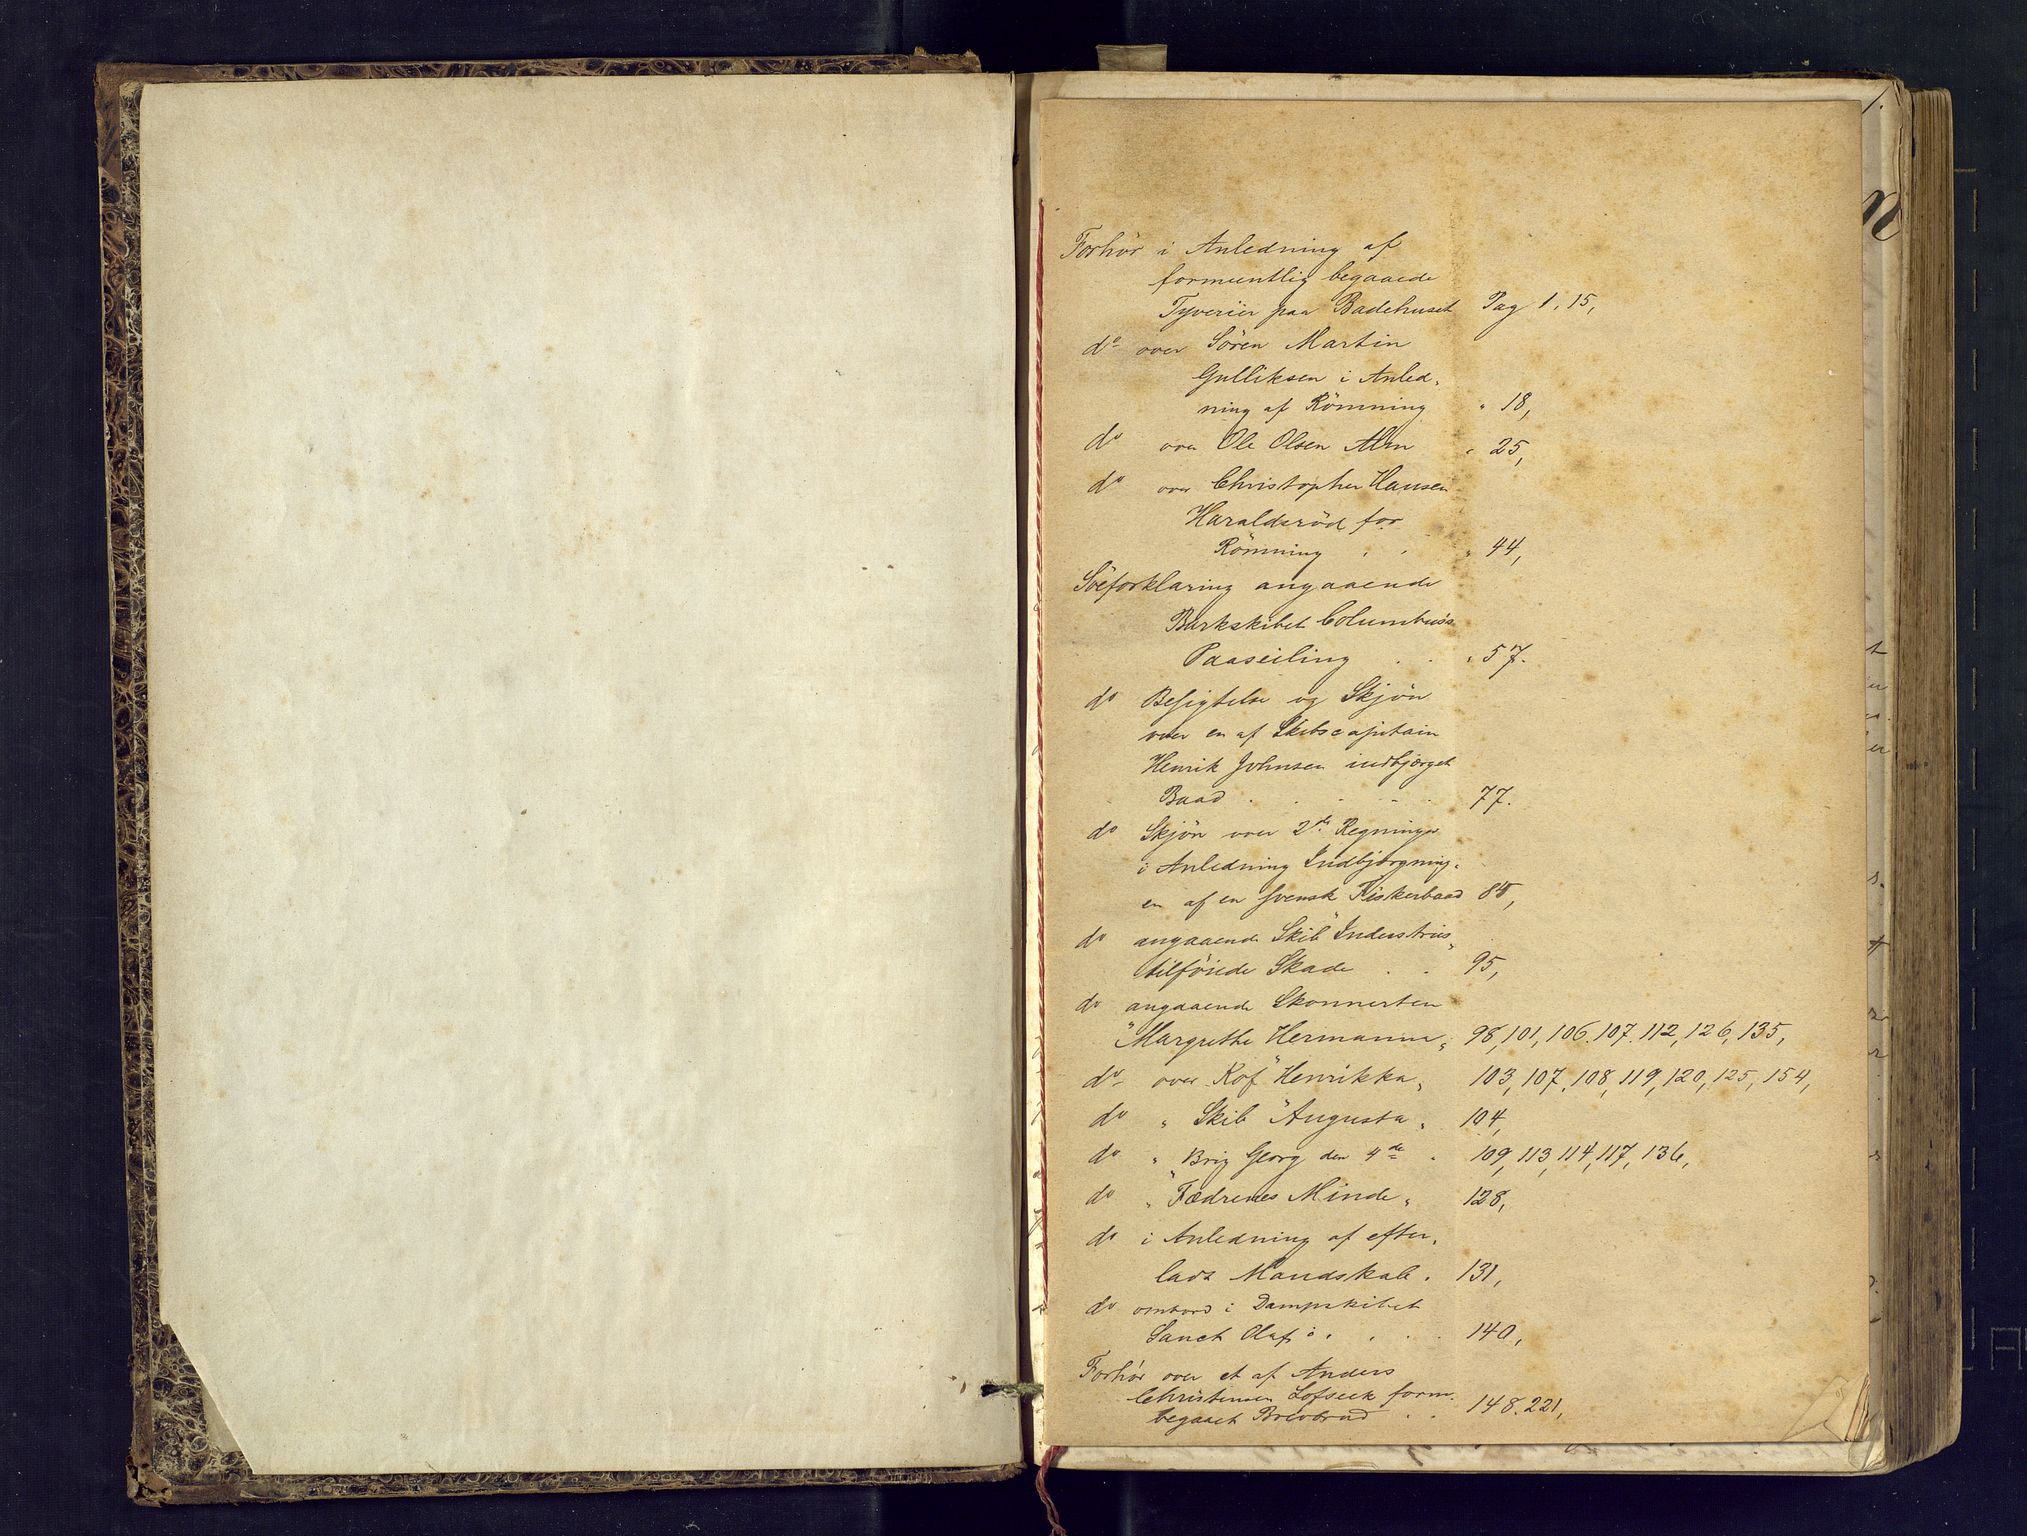 Forhör i Anledning af
formentlig begaaede
Tyverier paa Badehuset Pag 1. 15,
do over Sören Martin
Gulliksen i Anled-
ning af Römning " 18,
do over Ole Olsen Alm " 25,
do over Christopher Hansen
Haraldsröd for
Römning . . " 44,
Söeforklaring angaaende
Barkskibet Columbus's
Paaseiling . . " 57.
do Besigtelse og Skjön
over en af Skibscapitain
Henrik Johnsen indbjerget
Baad . . . . . 77.
do Skjön over 2de Regninger
i Anledning Indbjergning-
en af en svensk Fiskerbaad 85,
do angaaende Skib "Industries"
tilföiede Skade . . 95,
do angaaende Skonnerten
"Margrethe Hermanna" 98, 101, 106. 107. 112, 126, 135,
do over Kof "Henrikka" 103, 107, 108, 119, 120, 125, 154,
do " Skib "Augusta" 104,
do " Brig Georg den 4de " 109, 113, 114, 117, 136,
do " "Fædrenes Minde" 128,
do i Anledning af efter-
ladt Mandskab. 131,
do ombord i Dampskibet
Sanct Olaf . . . . 140,
Forhör over et af Anders
Christensen form.
begaaet Brevbrud . . 148. 221,
1.